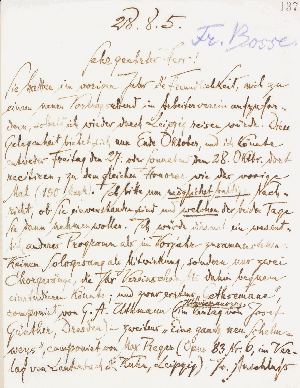 137
28. 8. 5.
Fr. Bosse.
Sehr geehrter Herr!
Sie hatten im vorigen Jahr die Freundlichkeit, mich zu
einem neuen Vortragsabend im Arbeiterverein aufzufor-
dern, wieder durch Leipzig reisen würde. Diese
Gelegenheit bietet sich nun Ende Oktober, und ich könnte
entweder Freitag den 27. oder Sonnabend den 28. Oktbr. dort
recitiren, zu dem gleichen Honorar wie das vorige
Mal (150 Mark). Ich bitte um möglichst baldige Nach-
richt, ob Sie einverstanden sind und welchen der beiden Tage
Sie dann nehmen wollen. Ich würde diesmal ein
andres Programm als im Vorjahr
keinen Sologesang als Mitwirkung, sondern nur zwei
Chorgesänge, die Ihr Vereinschor
einstudieren könnte; und zwar erstens
componirt von G. A. Uthmann (im Verlag von Josef
Günther, Dresden) – zweitens „Eine ganz neu Schelm-
weys", componirt von Max Reger (Opus 83 Nr. 6, im Ver-
lag von Lauterbach & Kuhn, Leipzig).